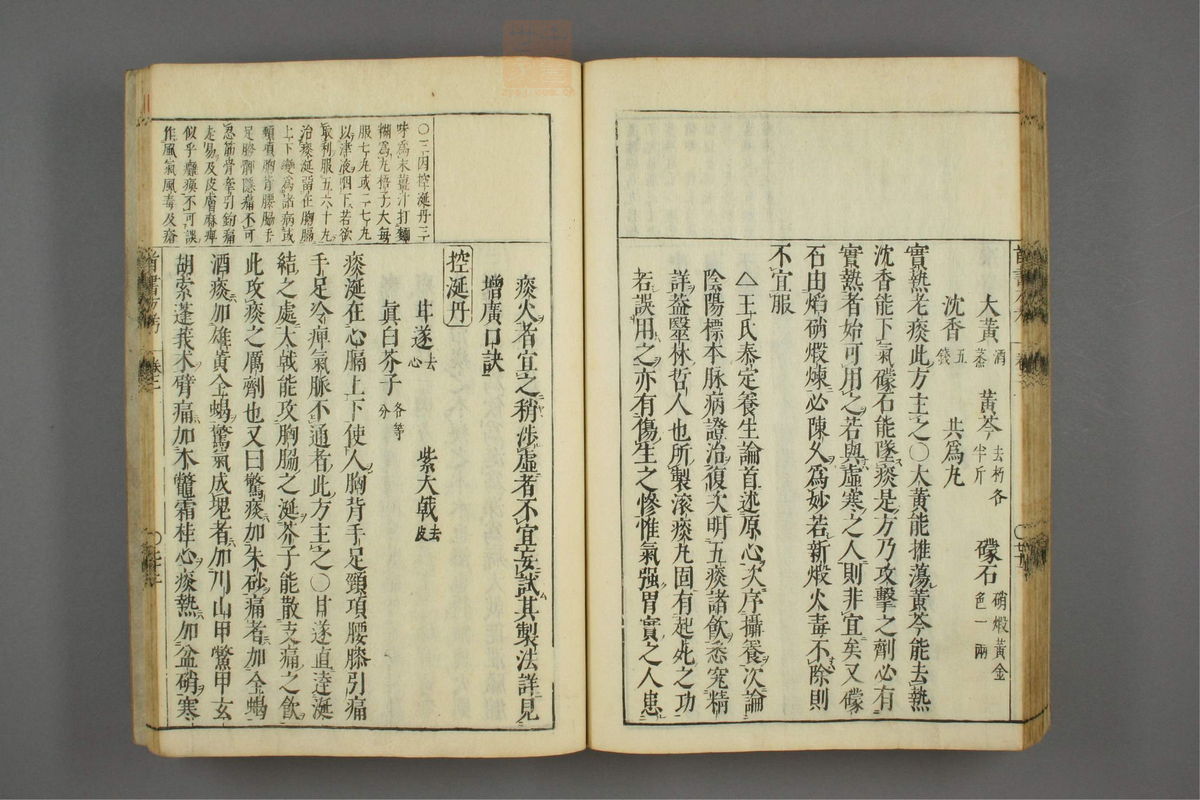 大黃酒蒸 黃芩去朽各半斤 礞石硝煆黃金色一兩
沈香五錢 共爲丸
實熱老痰此方主之○大黃能推蕩黃芩能去熱
沈香能下氣礞石能墜痰是方乃攻擊之劑必有
實熱者始可用之若與虛寒之人則非宜矣又礞
石由焰硝煆煉必陳久爲妙若新煆火毒不除則
不宜服
△王氏泰定養生論首述原心次序攝養次論
陰陽標本脉病證治復次明五痰諸飲悉究精
詳蓋毉林哲人也所製滚痰丸固有起死之功
若誤用之亦有傷生之慘惟氣强胃實之人患
痰火者宜之稍涉虛者不宜妄試其製法詳見
增廣口訣
控涎丹
甘遂去心 紫大戟去皮
眞白芥子各等分
痰涎在心膈上下使人胸背手足頸項腰膝引痛
手足冷痺氣脈不通者此方主之○甘遂直達涎
結之處大戟能攻胸脇之涎芥子能散支痛之飲
此攻痰之厲劑也又曰驚痰加朱砂痛者加全蝎
酒痰加雄黃全蝎驚氣成塊者加川山甲鱉甲玄
胡索蓬莪朮臂痛加木鱉霜桂心痰熱加盆硝寒
○三因控涎丹三
味爲末薑汁打麵
糊爲丸梧子大每
服七丸或二七丸
以津液嚥下若欲
取利服五六十丸
治痰涎留在胸膈
上下變爲諸病或
頸項胸背腰脇手
足胯髀隱痛不可
忍筋骨牽引釣痛
走易及皮膚麻痺
似乎癱瘓不可誤
作風氣風毒及瘡